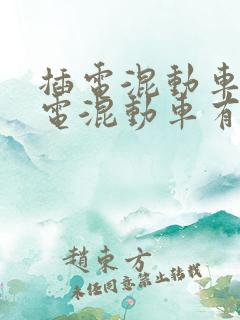 插電混動車
電混動車有
趙東方
未經同意禁止轉載